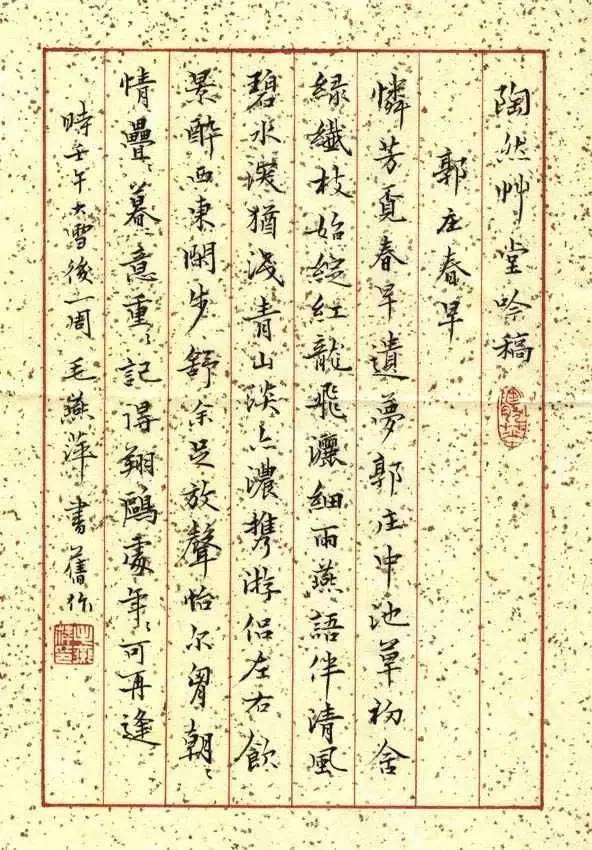 陶然艸堂吟稿
郭庄春早
憐芳覓春早遺夢郭庄中池草初含
綠纖枝始綻紅龍飛灑細雨燕語伴清風
碧水深猶浅青山淡亦濃携游侶左右飲
景醉西東閑步舒余足放聲怡尔胷朝々
情疊々暮々意重々記得翔鷗處年々可再逢
時壬午大雪後一周毛燕萍書舊作